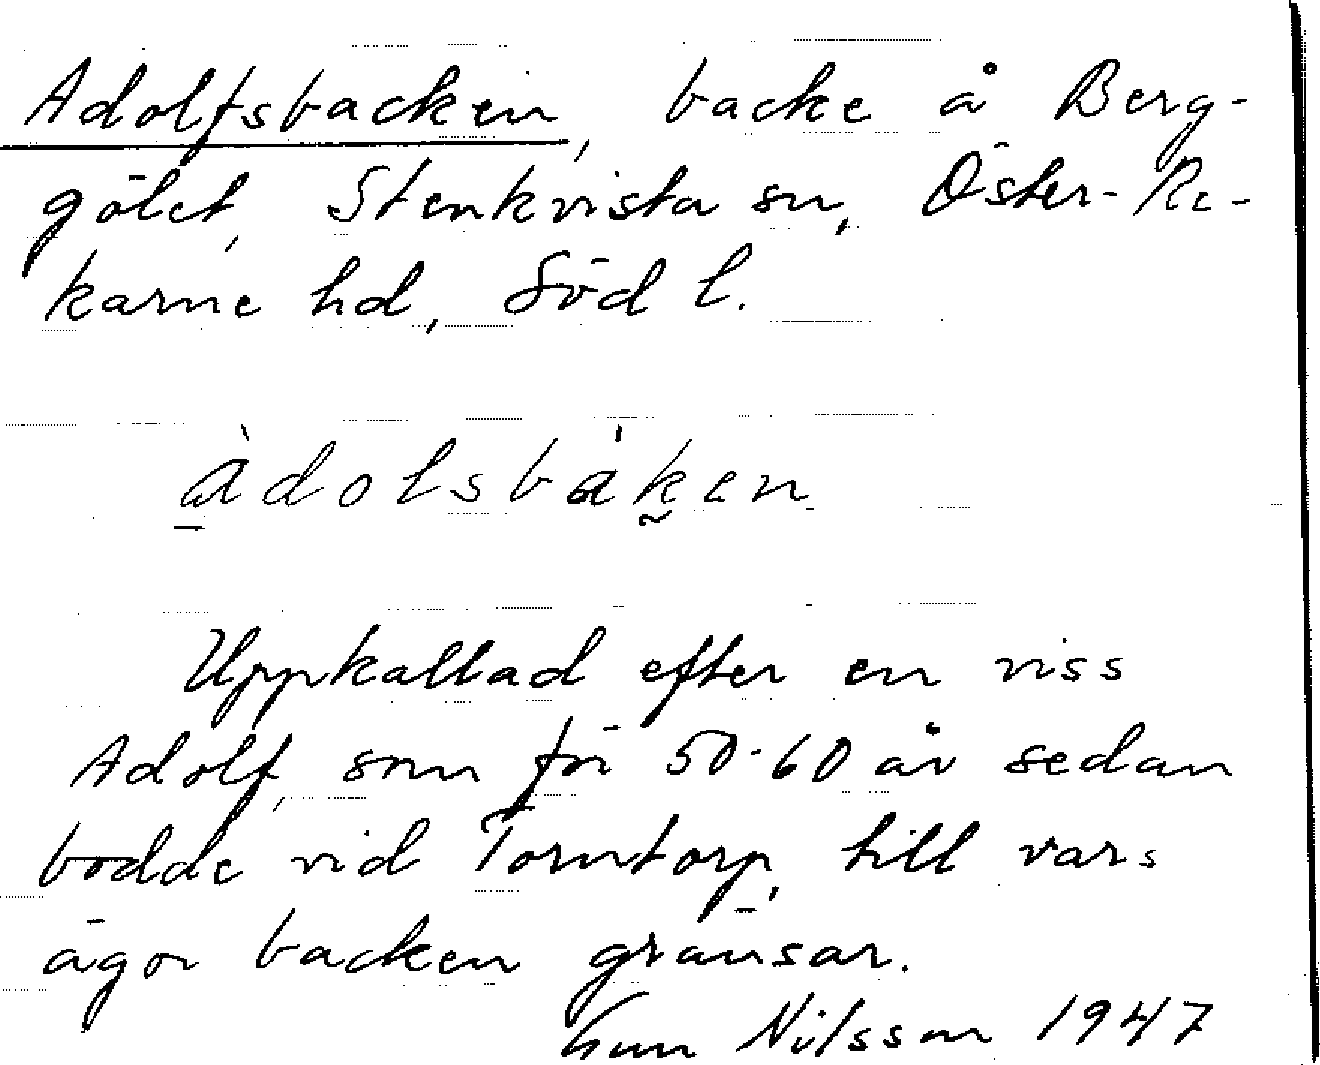 Adolfsbacken, backe å Berg-
götet, Stenkvista sn, Öster-Re-
karne hd, Söd l.
àdolsbàken
Uppkallad efter en viss
Adolf, som för 50-60 år sedan
bodde vid Torntorp, till vars
ägor backen gränsar.
Gun Nilsson 1947